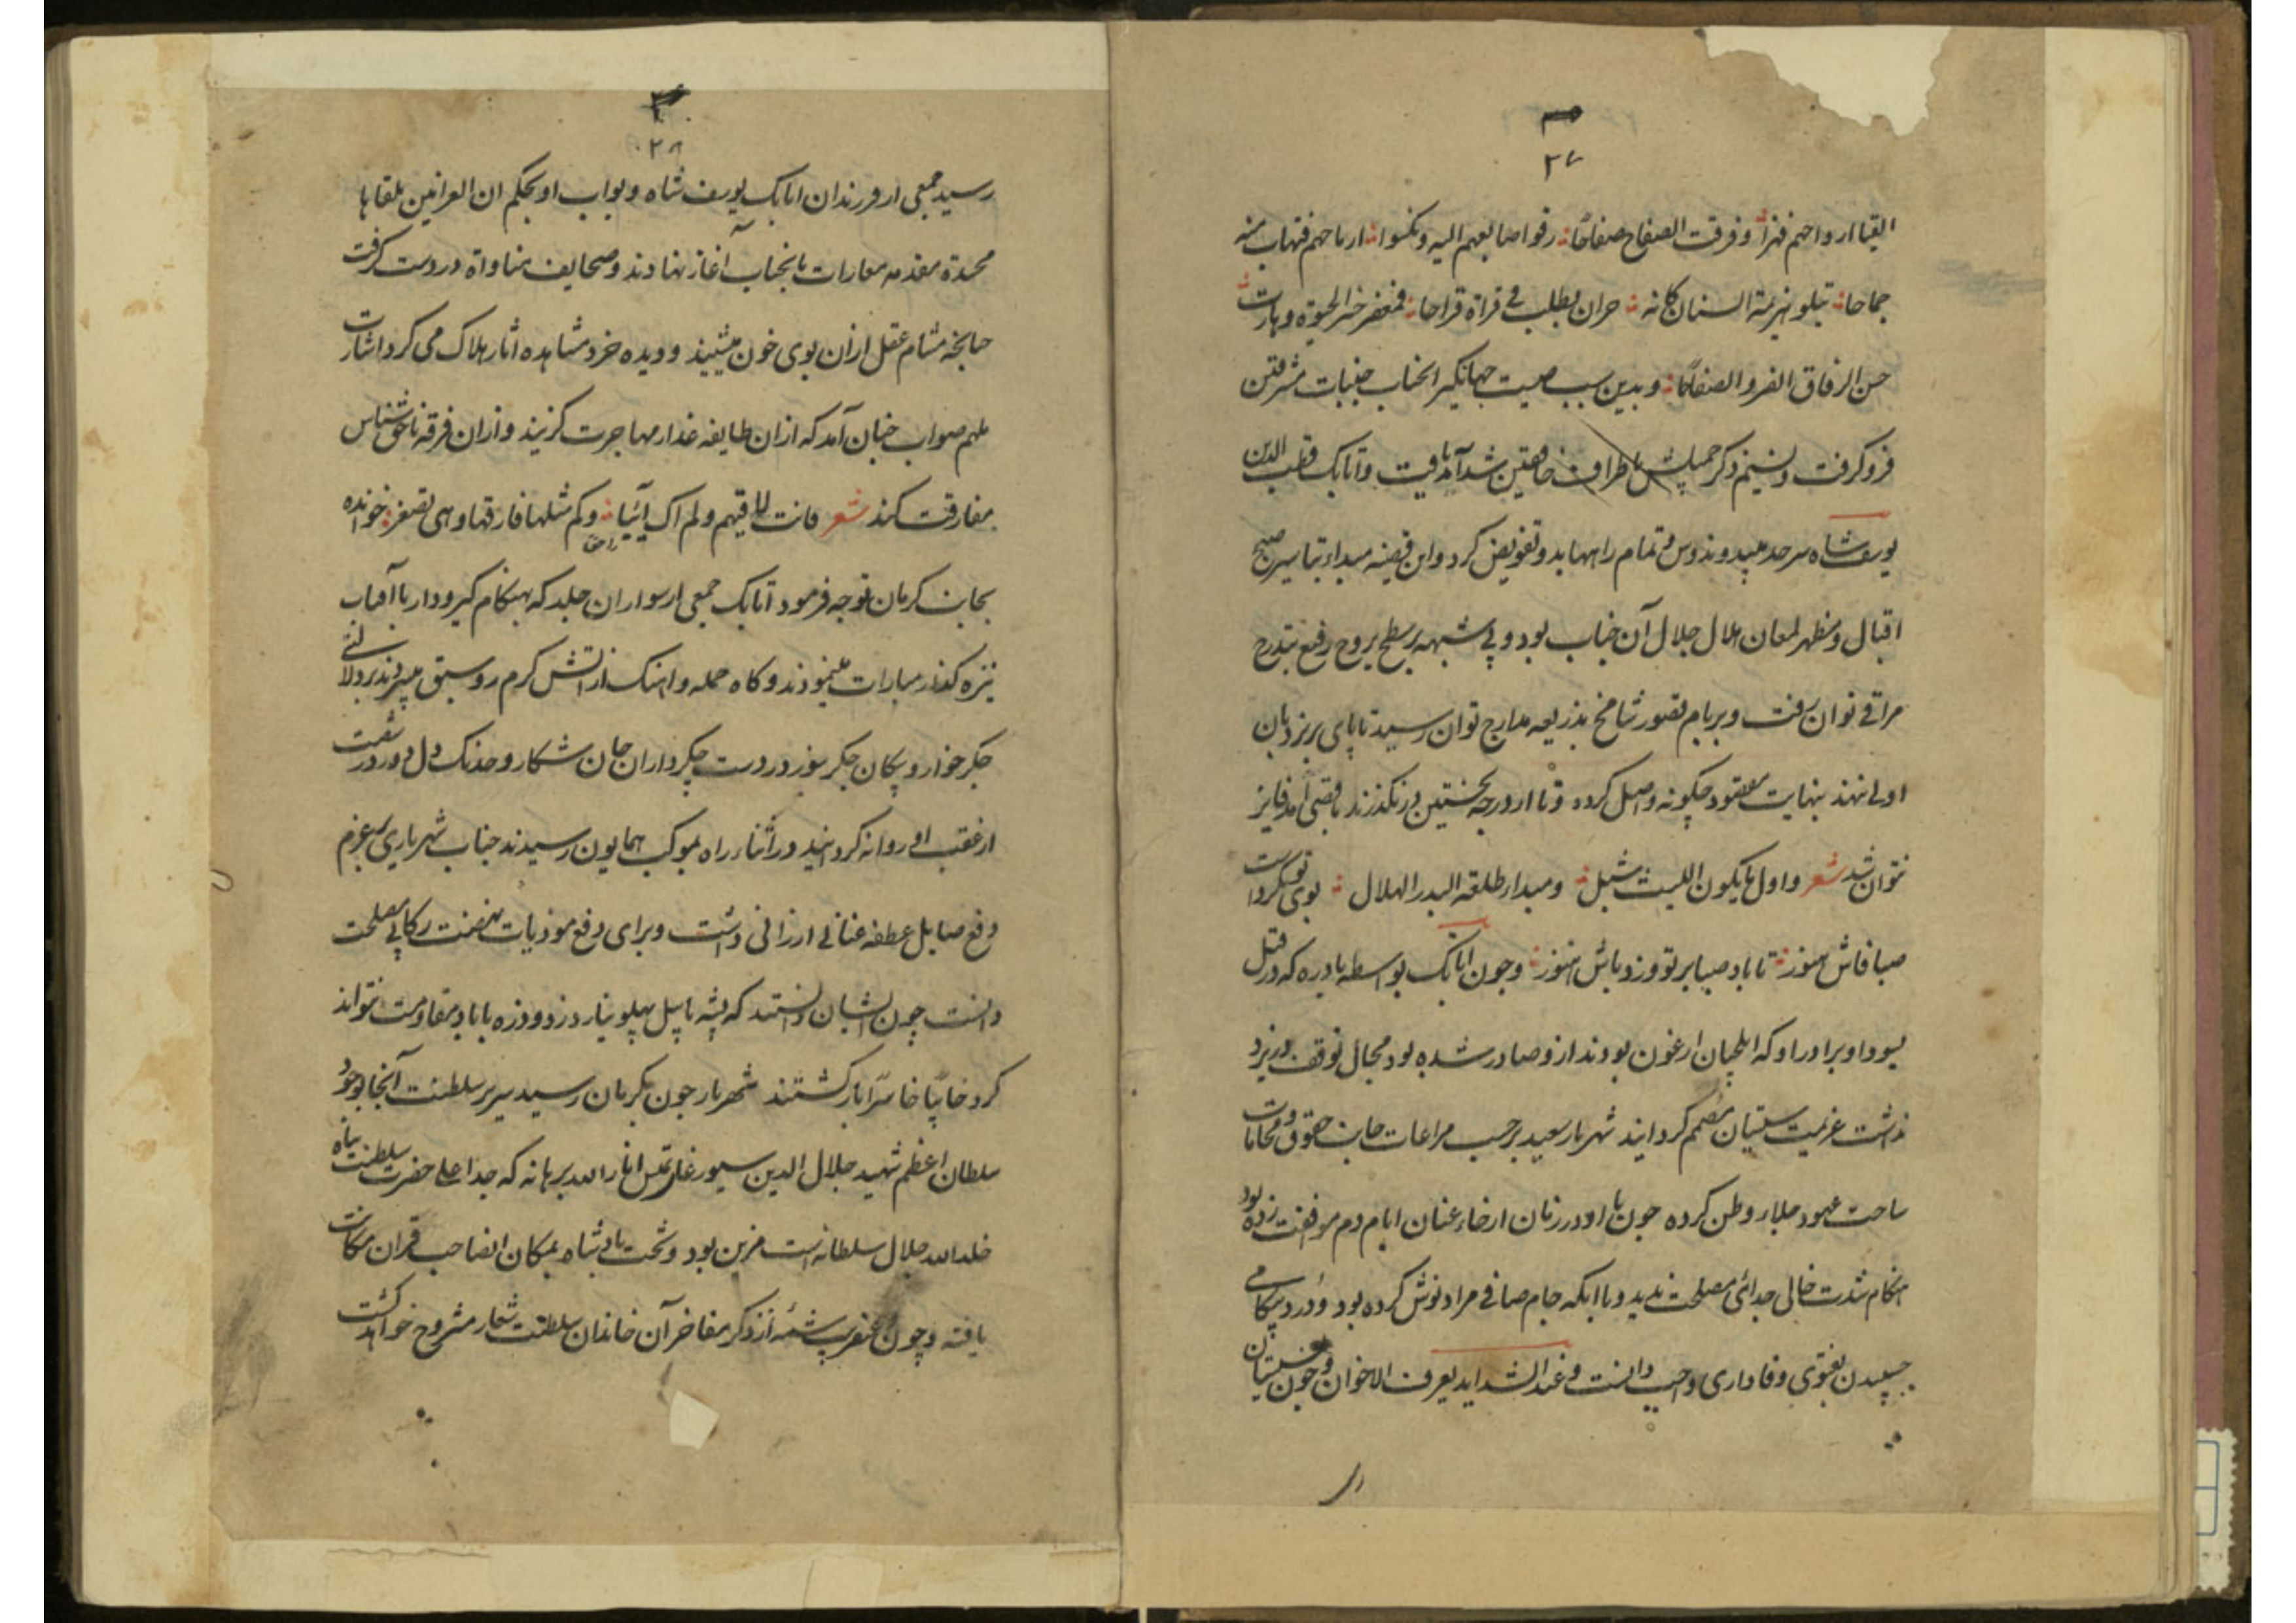 ۲۷
القیا ارواحهم فهزا وفرقت الصفاح صفاحا رفوا صابعهم الیه ونکسوا ارماحهم فتهاب منه
جماحا تبلو بهزیمة السنان کانه حران یطلب فی قراة قراحا
حسن الرفاق الغر والصفاحا وبدین سبب صیت جهانکیر انجناب جنبات مشرقین
فروکرفت ونسیم ذکر جمیلش باطراف خافقین شدآمد یافت واتابک قطب الدین
یوسفشاه سرحد میبد وندوشن تمام را بها بدو تفویض کرد واین قضیه مبداء تباسیر صبح
اقبال ومظهر لمعان هلال جلال آن جناب بود وبی شبهه بر سطح بروج رفیع بتدرج
مراقی توان رفت وبربام قصور شامخ بذریعه مدارج توان رسید تا پای بر نردبان
اولی ننهند بنهایت مقصود چکونه واصل کردد وتا از درجه نخستین درنکذرند باقصی آمد فایز
نتوان شد شعر واول ما یکون اللیث شبل ومبدا طلعة البدر الهلال بوی تو نکرداست
صبا فاش هنوز تا باد صبا بر تو وزد باش هنوز وچون اتابک بواسطه بادره که در قتل
یسودا وبرادر او که ایلچیان ارغون بودند ازو صادر شده بود مجال توقف در یزد
نداشت عزیمت سیستان مصمم کردانید شهریار سعید برحسب مراعات جانب حقوق ومحامات
ساحت عهود جلاء وطن کرده چون با او در زمان ارخاء عنان ایام دم موافقت زده بود
هنکام شدت خالی جدائی مصلحت ندید وباانکه جام صافی مراد نوش کرده بود ودرد بیکامی
چسپیدن بفتوی وفاداری واجب دانست وعند الشداید یعرف الاخوان وچون بسیستان
۲۸
رسید جمعی از فرزندان اتابک یوسف شاه ونواب او بحکم ان العرانین تلقاها
محسدة مقدمه معادات بانجناب آغاز نهادند وصحایف مناواة در دست کرفت
چنانچه مشام عقل ازان بوی خون میشنید ودیده خرد مشاهده اثار هلاک می کرد اشارت
ملهم صواب چنان آمد که ازان طایفه غدار مهاجرت کزیند وازان فرقه ناحق شناس
مفارقت کند شعر فابت الی فهم ولم اک آئبا وکم مثلها فارقتها وهی تصفر خوانده
بجانب کرمان توجه فرمود اتابک جمعی از سواران جلد که بهنکام کیرودار با آفتاب
نیزه کذار مبارات مینمودند وکاه حمله واهنک از اتش کرم رو سبق میبردند
جکر خوار وپیکان جکر سوز در دست چکرداران جان شکار وخدنک دل دوز در شست
از عقب او روانه کردانید در اثناء راه بموکب همایون رسیدند جناب شهریاری بعزم
دفع صایل عطفه عنانی ارزانی داشت وبرای دفع موذیات نهضت رکابی مصلحت
دانست چون ایشان دانستند که پشه با پیل پهلو نیارد زد وذره با باد مقاومت نتواند
کرد خایبا خاسرا بازکشتند شهریار چون بکرمان رسید سریر سلطنت آنجا بوجود
سلطان اعظم شهید جلال الدین سیورغتمش انار الله برهانه که جد اعلی حضرت سلطنت پناه
خلد الله جلال سلطانه است مزین بود وتخت پادشاه بمکان انصاحب قران مکانت
یافته وچون عنقریب شمه از ذکر مفاخر آن خاندان سلطنت شعار مشروح خواهد کشت